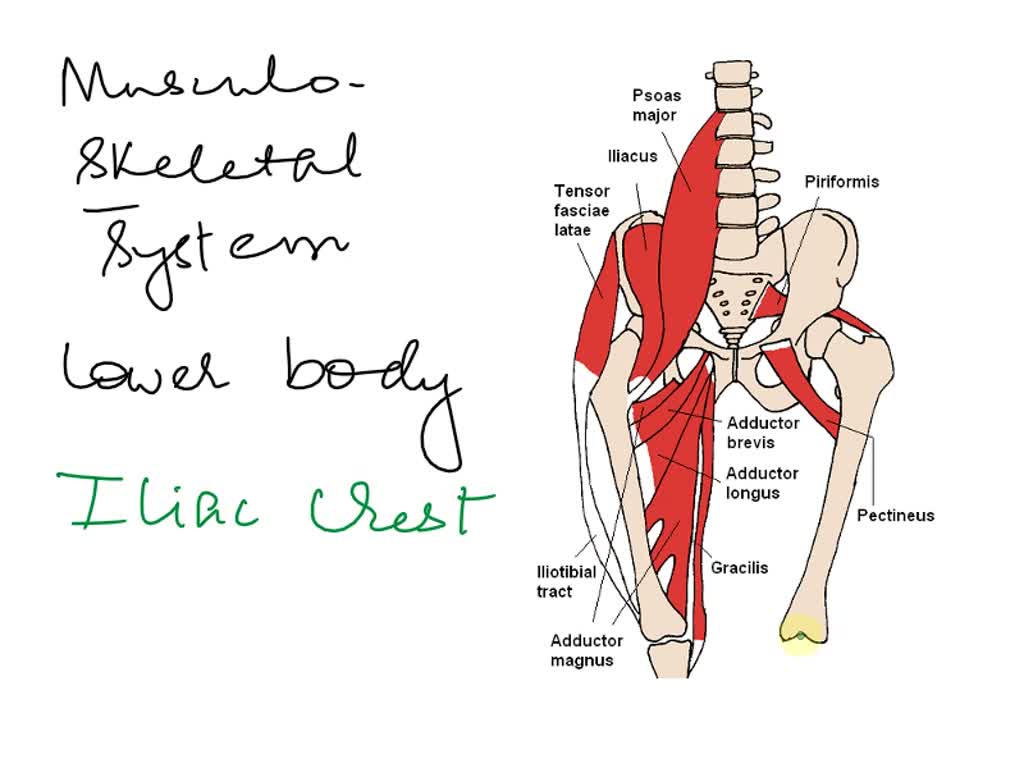 Musculo-
Skeletal
System
Lower body
Iliac Crest
Psoas
major
Iliacus
Tensor
fasciae
latae
Piriformis
Adductor
brevis
Adductor
longus
Pectineus
Gracilis
Iliotibial
tract
Adductor
magnus